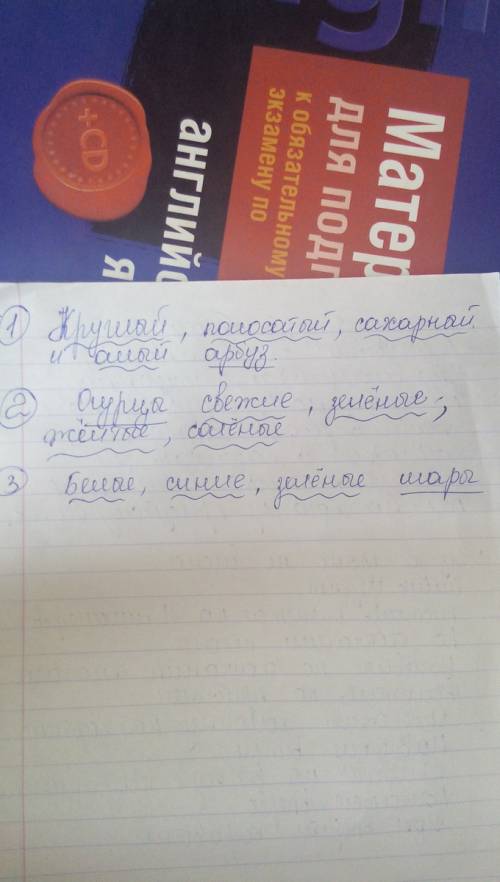 Матер
для подг
к обязательному
экзамену по
англий
я
+CD
1 Круглый, полосатый, сахарный
и алый арбуз.
2 Огурцы свежие, зелёные,
жёлтые, солёные
3 Белые, синие, зелёные шары